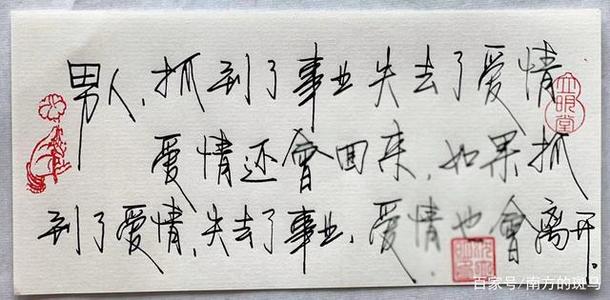 男人，抓到了事业失去了爱情
爱情还會回来，如果抓
到了爱情，失去了事业，爱情也會离开。
百家号/南方的斑马